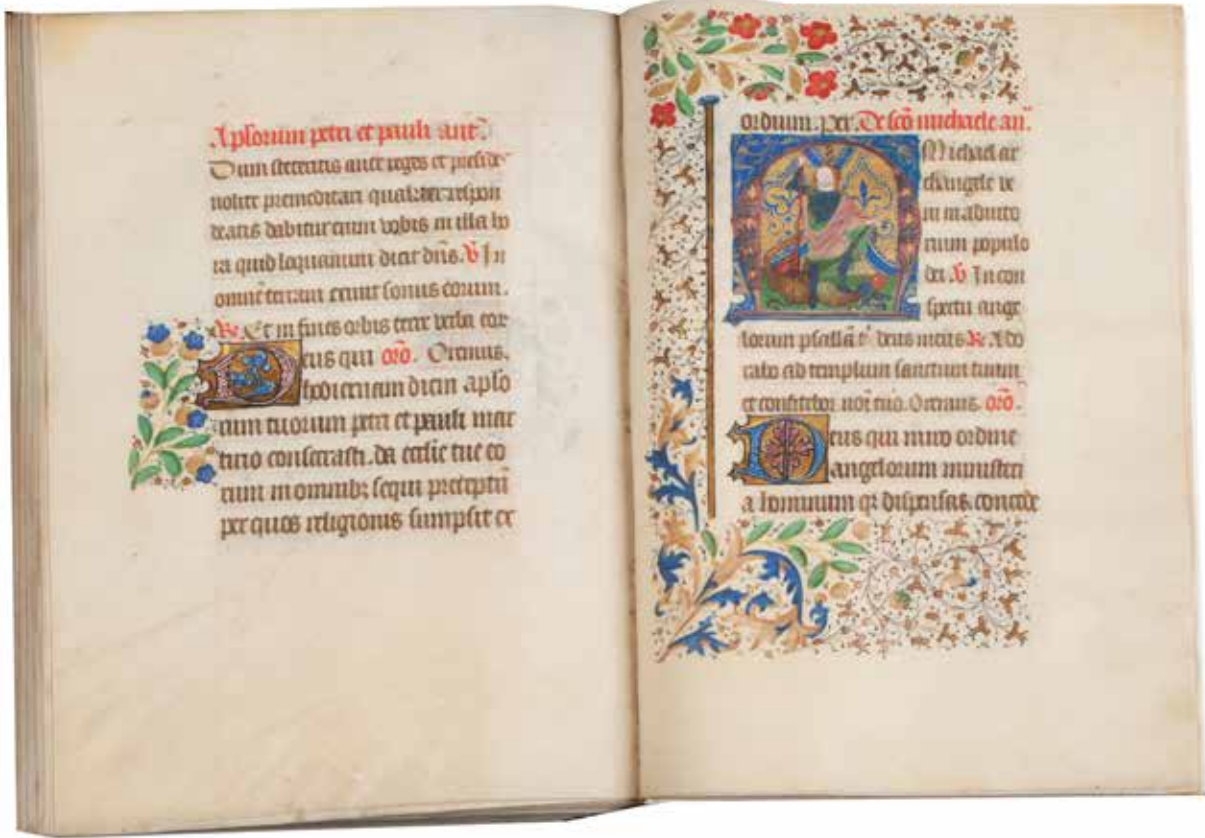 Apłorum petri et pauli ant̄
Dum steteritis ante reges et preside
nolite premeditari qualiter respon
deatis dabitur enim vobis in illa ho
ra quid loquamini dicit dn̄s. V̄ In
omnē terram exiuit sonus eorum.
R̄. Et in fines orbis terre verba eor
Deus qui or̄o. Oremus.
hodiernam diem aplo
rum tuorum petri et pauli mar
tirio consecrasti. da ecclie tue eo
rum in omnibz sequi preceptū
per quos religionis sumpsit ex
ordium. per. De sc̄o michaele an̄.
Michael ar
changele ve
ni in adiuto
rium populo
dei. V̄ In con
spectu ange
lorum psallā t̄ deus meus R̄. Ado
rabo ad templum sanctum tuum
et confitebor noī tuo. Oremus. or̄o.
Deus qui miro ordine
angelorum ministeri
a hominum qz dispensas. concede